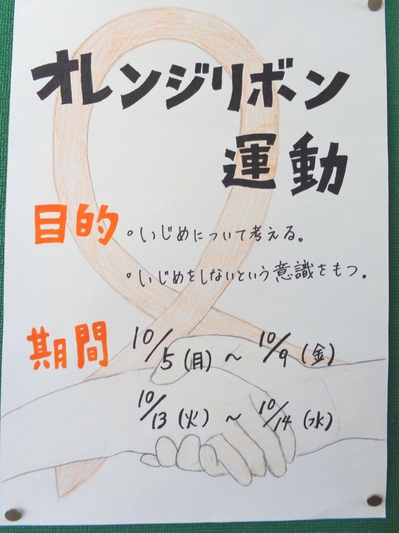 オレンジリボン
運動
目的 。いじめについて考える。
。いじめをしないという意識をもつ。
期間 10/5(月)～10/9(金)
10/13(火)～10/14(水)